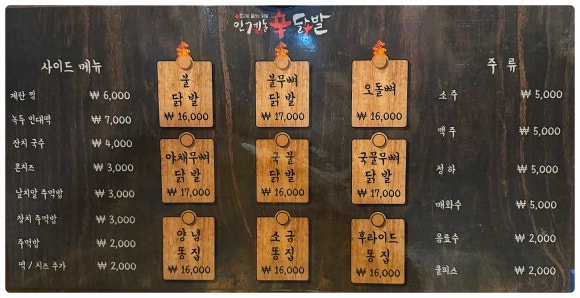 인계동 辛 닭발
사이드 메뉴
계란 찜 ₩ 6,000
녹두 빈대떡 ₩ 7,000
잔치 국수 ₩ 4,000
콘치즈 ₩ 3,000
날치알 주먹밥 ₩ 3,000
참치 주먹밥 ₩ 3,000
주먹밥 ₩ 2,000
떡 / 치즈 추가 ₩ 2,000
불
닭 발
₩ 16,000
불무뼈
닭 발
₩ 17,000
오돌뼈
₩ 16,000
야채무뼈
닭 발
₩ 17,000
국 물
닭 발
₩ 16,000
국물무뼈
닭 발
₩ 17,000
양 념
똥 집
₩ 16,000
소 금
똥 집
₩ 16,000
후라이드
똥 집
₩ 16,000
주 류
소 주 ₩ 5,000
맥 주 ₩ 5,000
청 하 ₩ 5,000
매화수 ₩ 5,000
음료수 ₩ 2,000
쿨피스 ₩ 2,000